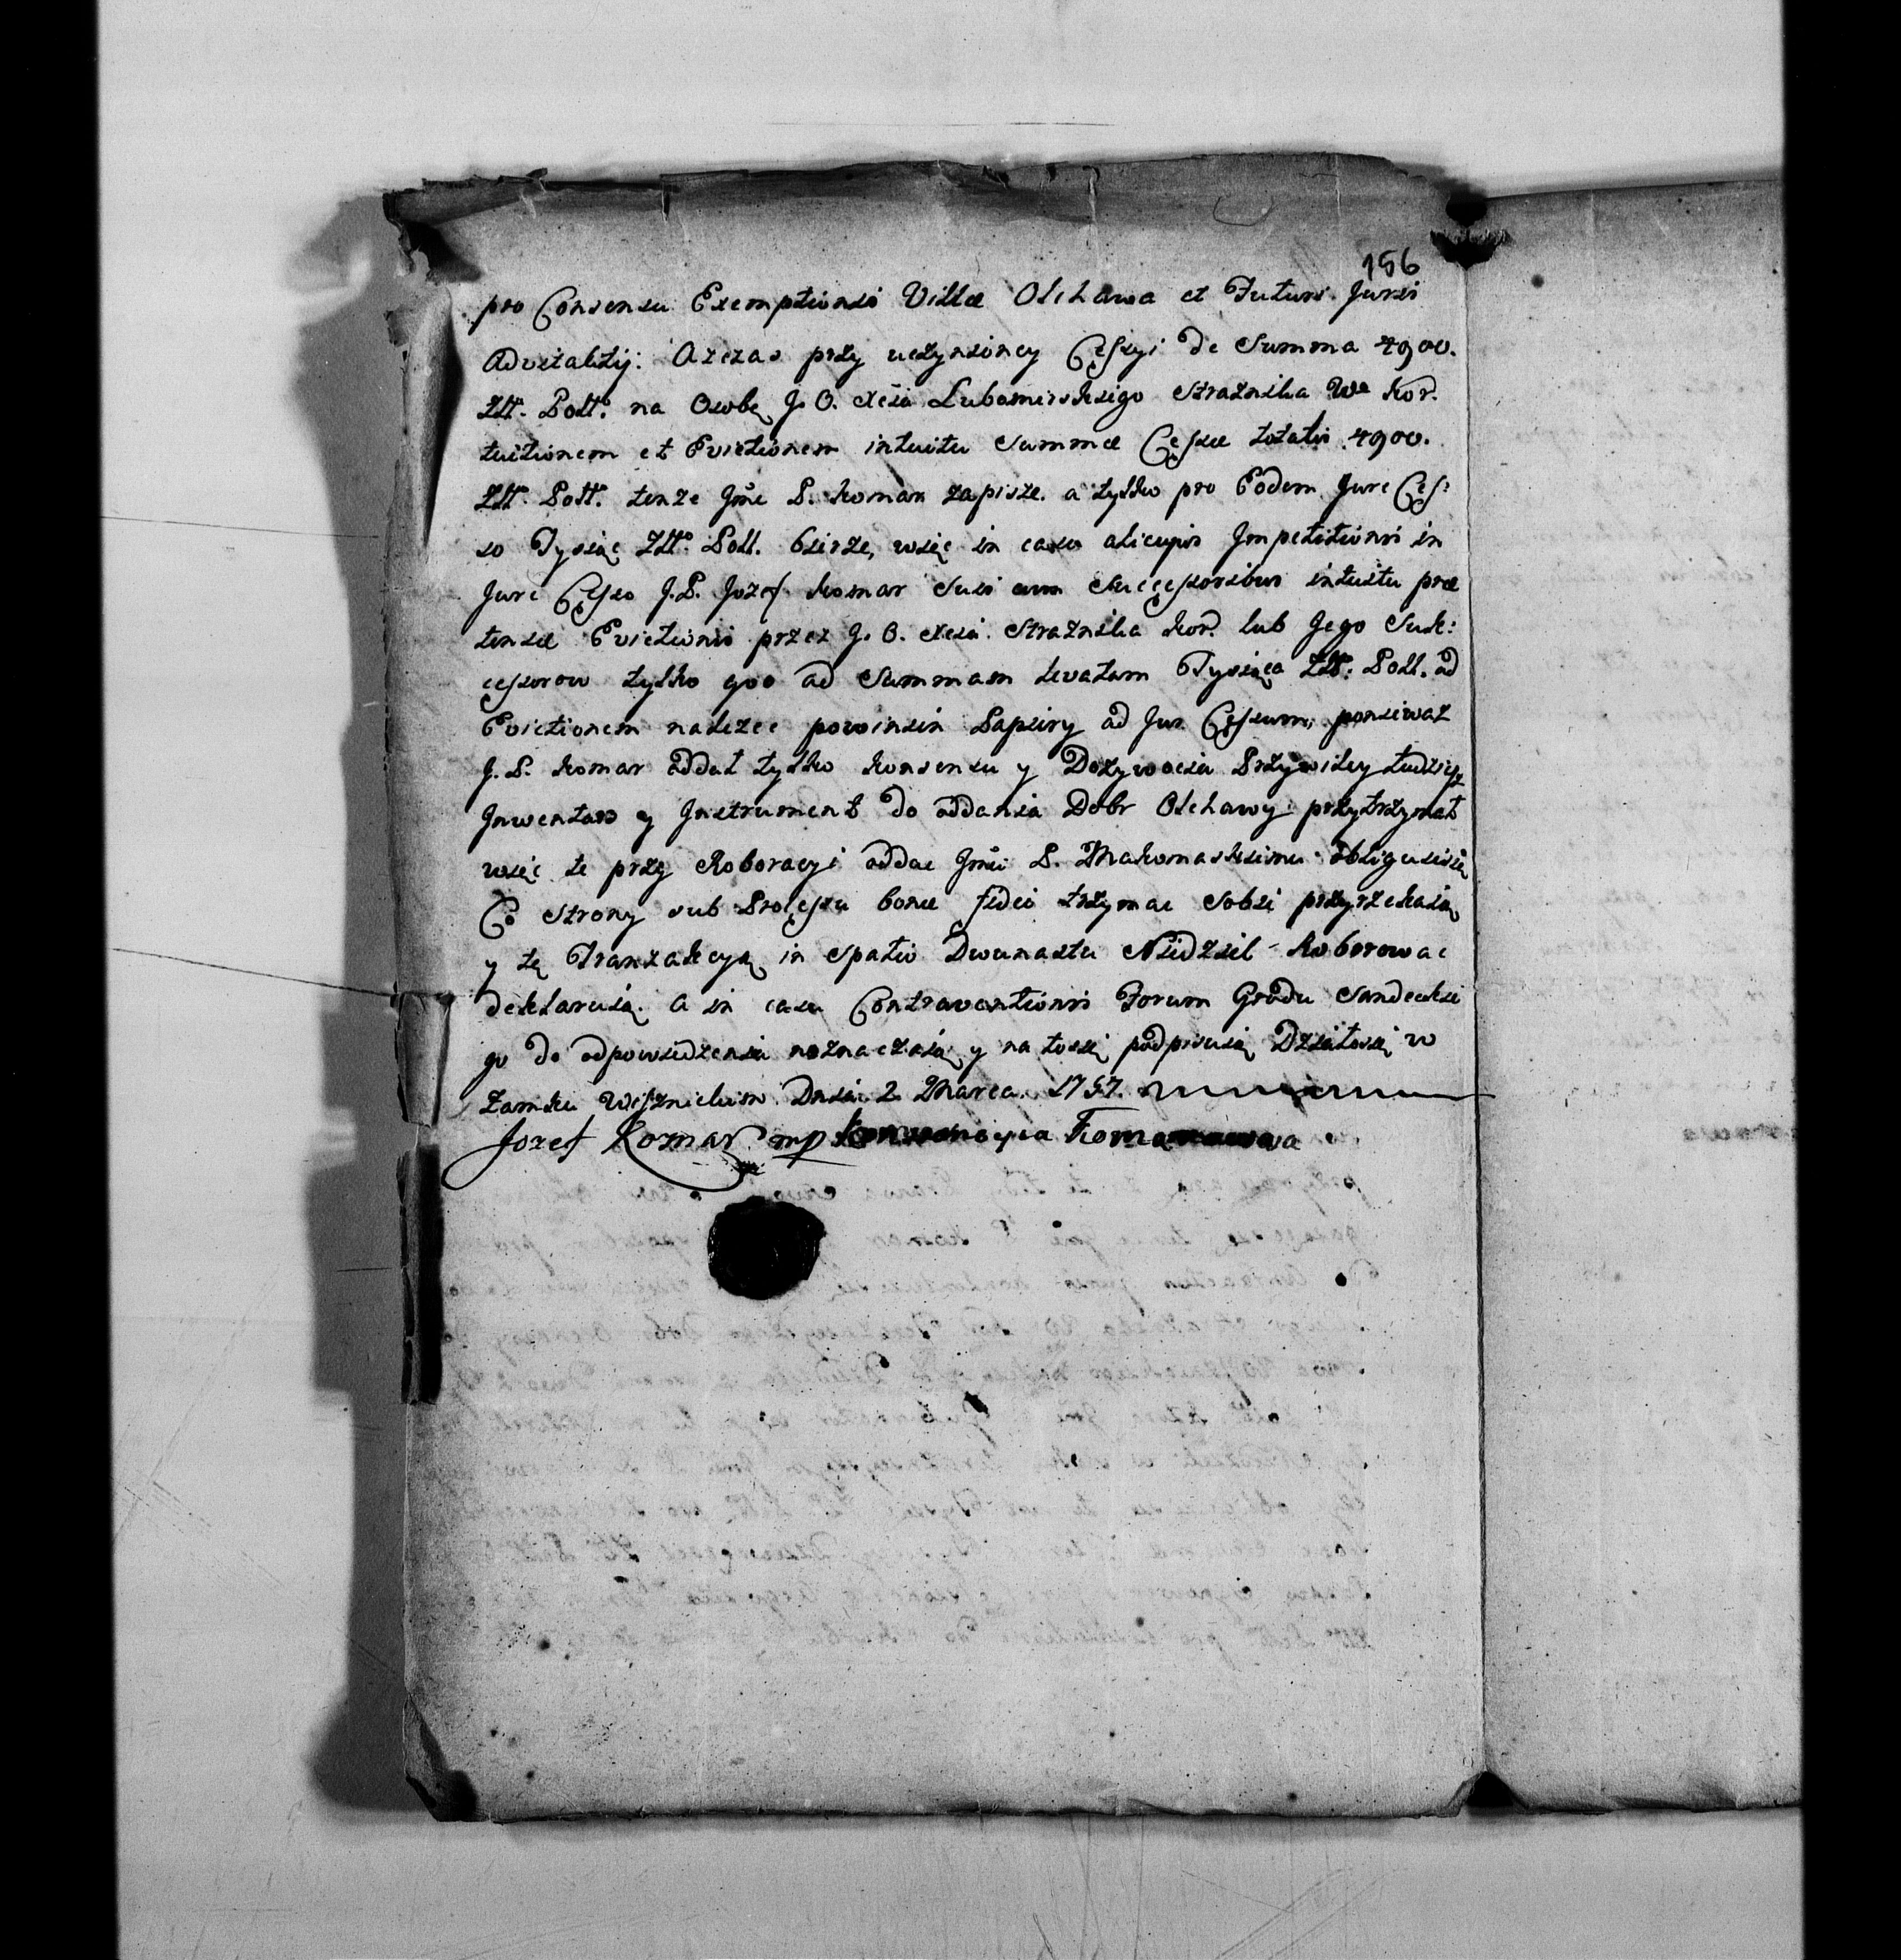 156
pro Consensu Exemptionis Villæ Olchawa et Futuri Juris
Advitalitij: A zezas przy uczynioney Cęssyi de Summa 4900.
Złł. Poll. na Osobę J. O. Xcia Lubomirskiego Straznika Wo Kor.
tuitionem et Evictionem intuitu Summæ Cęssæ totalis 4900.
Złł. Poll. tenze Jmć P. Komar zapisze. a tylko pro Eodem Jure Cęs:
so Tysiąc Złł. Poll. bierze, więc in casu alicujus Impetitionis in
Jure Cęsso J. P. Jozef Komar Suis cum Succęssoribus intuitu præ
tensæ Evictionis przez J. O. Xcia Straznika Kor. lub Jego Suk:
cessorow tylko quo ad Summam levatam Tysiąca Złł: Poll. ad
Evictionem nalezec powinien Papiery ad Jus Cęssum, poniewaz
J. P. Komar oddał tylko Konsensu y Dozywocia Przywiley tudziesz
Inwentarz y Instrument do oddania Dobr Olchawy przytrzymał
więc te przy Roboracyi oddac Jmci P. Makomaskiemu obliguie się
Co Strony sub Procęssu bonæ fidei trzymac Sobie przyrzekaią
y tę Tranzakcyą in Spatio Dwunastu Niedziel Roborowac
deklaruią. A in casu Contraventionis Forum Grodu Sandecki
go do odpowiedzenia naznaczaią y na to się podpisuią Działo się w
Zamku Wisznickim Dnia 2 Marca 1757.
Jozef Komar mp